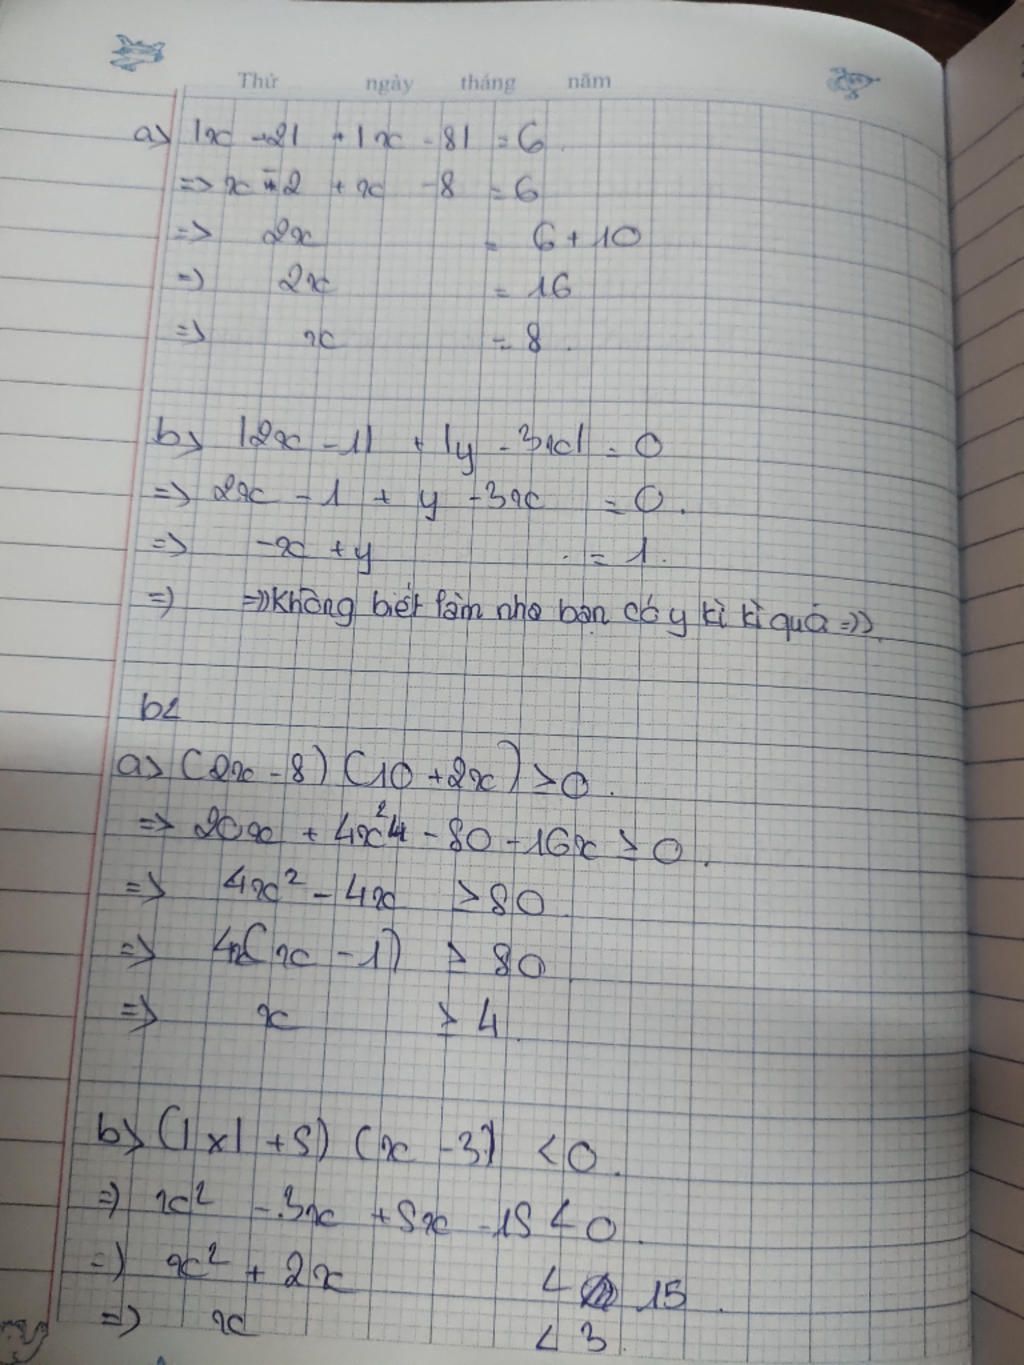 Thứ ngày tháng năm
a> |x - 2| + |x - 8| = 6.
=> x - 2 + x - 8 = 6
=> 2x = 6 + 10
=> 2x = 16
=> x = 8.
b> |2x - 1| + |y - 3x| = 0
=> 2x - 1 + y - 3x = 0.
=> -x + y = 1.
=> =>>Không biết làm nha bạn có y kì kì quá =>>.
b2
a> (2x - 8) (10 + 2x) > 0.
=> 20x + 4x² - 80 - 16x > 0.
=> 4x² - 4x > 80
=> 4x(x - 1) > 80
=> x > 4.
b> (|x| + 5) (x - 3) < 0.
=> x² - 3x + 5x - 15 < 0.
=> x² + 2x < 15.
=> x < 3.